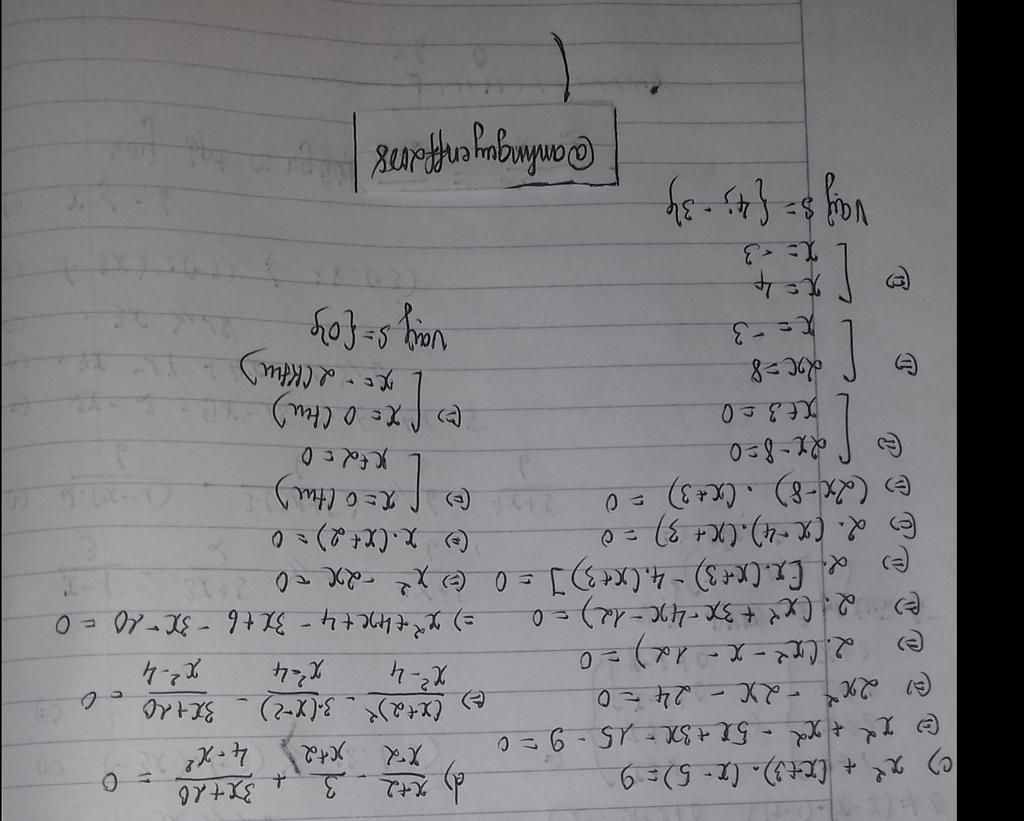 c) x² + (x+3).(x-5) = 9
(=) x² + x² - 5x + 3x - 15 - 9 = 0
(=) 2x² - 2x - 24 = 0
(=) 2.(x² - x - 12) = 0
(=) 2.(x² + 3x - 4x - 12) = 0
(=) 2.[x.(x+3) - 4.(x+3)] = 0
(=) 2.(x-4).(x+3) = 0
(=) (2x-8).(x+3) = 0
(=) [2x-8=0
x+3=0
(=) [2x=8
x=-3
(=) [x=4
x=-3
Vậy S={4;-3}
d) x+2/x-2 - 3/x+2 + 3x+20/4-x² = 0
(=) (x+2)²/x²-4 - 3.(x-2)/x²-4 - 3x+20/x²-4 = 0
=) x²+4x+4 - 3x+6 - 3x-20 = 0
(=) x² - 2x = 0
(=) x.(x+2) = 0
(=) [x=0 (tm)
x+2=0
(=) [x=0 (tm)
x=-2 (Ktm)
Vậy S={0}
@anhnguyenff2008